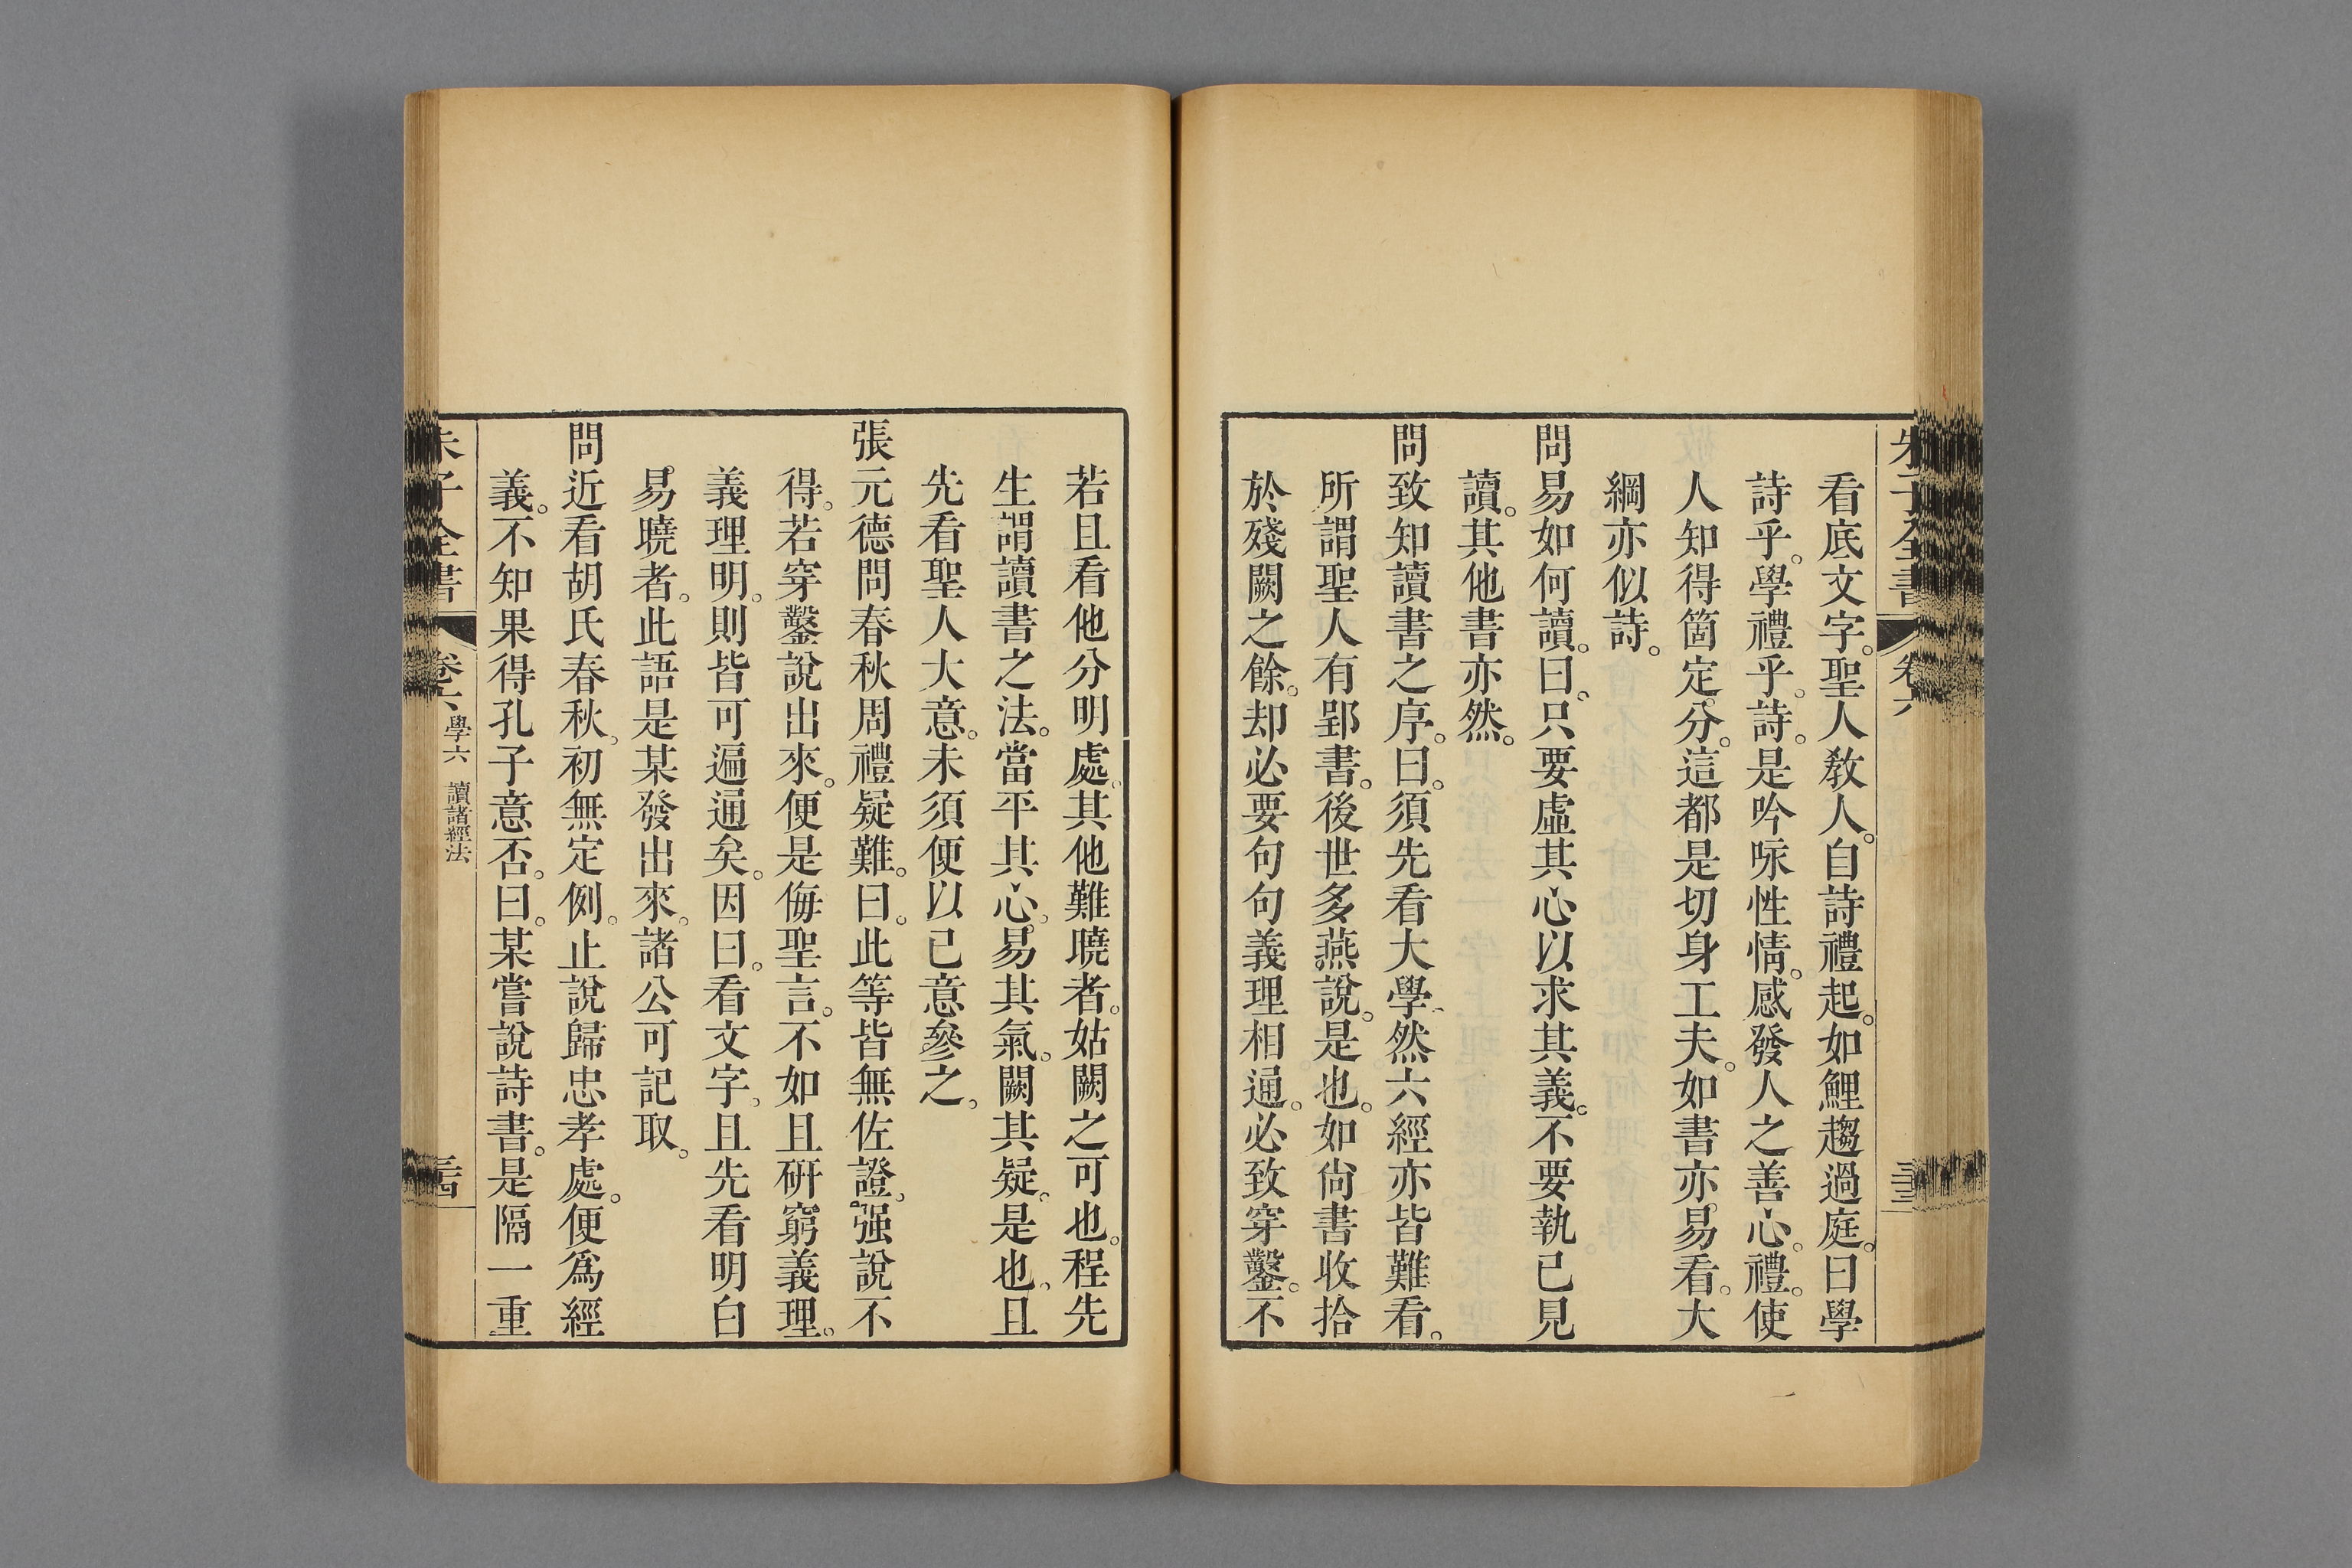 朱子全書 卷六 三十三
看底文字。聖人敎人。自詩禮起。如鯉趨過庭。曰學
詩乎。學禮乎。詩。是吟咏性情。感發人之善心。禮。使
人知得箇定分。這都是切身工夫。如書亦易看。大
綱亦似詩。
問易如何讀。曰。只要虛其心以求其義。不要執已見
讀。其他書亦然。
問致知讀書之序。曰。須先看大學。然六經亦皆難看。
所謂聖人有郢書。後世多燕說。是也。如尙書收拾
於殘闕之餘。却必要句句義理相通。必致穿鑿。不
若且看他分明處。其他難曉者。姑闕之可也。程先
生謂讀書之法。當平其心。易其氣。闕其疑。是也。且
先看聖人大意。未須便以已意參之。
張元德問春秋周禮疑難。曰。此等皆無佐證。强說不
得。若穿鑿說出來。便是侮聖言。不如且硏窮義理。
義理明。則皆可遍通矣。因曰。看文字。且先看明白
易曉者。此語是某發出來。諸公可記取。
問近看胡氏春秋。初無定例。止說歸忠孝處。便爲經
義。不知果得孔子意否。曰。某嘗說詩書。是隔一重
朱子全書 卷六 學六 讀諸經法 三十四